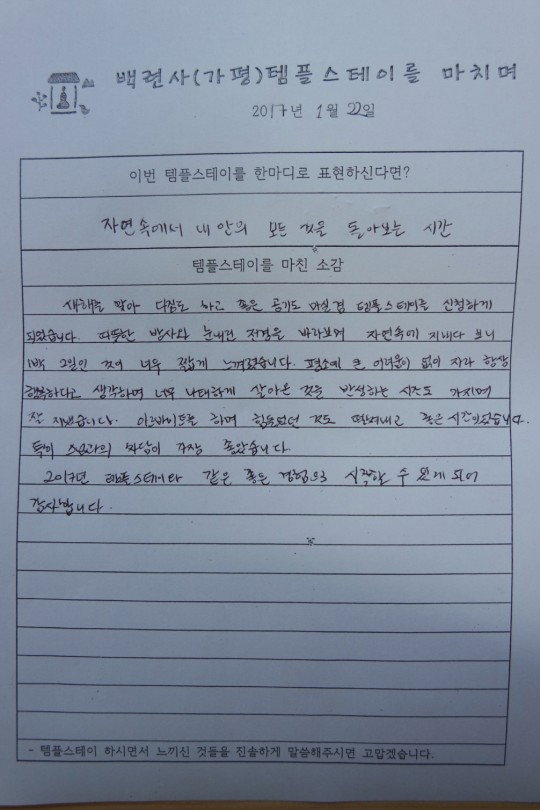 백련사(가평)템플스테이를 마치며
2017년 1월 22일
이번 템플스테이를 한마디로 표현하신다면?
자연속에서 내 안의 모든 것을 돌아보는 시간
템플스테이를 마친 소감
새해를 맞아 다짐도 하고 좋은 공기도 마실 겸 템플스테이를 신청하게
되었습니다. 따뜻한 방사와 눈내린 전경을 바라보며 자연속에 지내다 보니
1박 2일인 것이 너무 짧게 느껴졌습니다. 평소에 큰 어려움이 없이 자라 항상
행복하다고 생각하며 너무 나태하게 살아온 것을 반성하는 시간도 가지며
잘 지냈습니다. 아르바이트를 하며 힘들었던 것도 떨쳐내고 좋은 시간이었습니다.
특히 스님과의 차담이 가장 좋았습니다
2017년 템플스테이라 같은 좋은 경험으로 시작할 수 있게 되어
감사합니다.
- 템플스테이 하시면서 느끼신 것들을 진솔하게 말씀해주시면 고맙겠습니다.